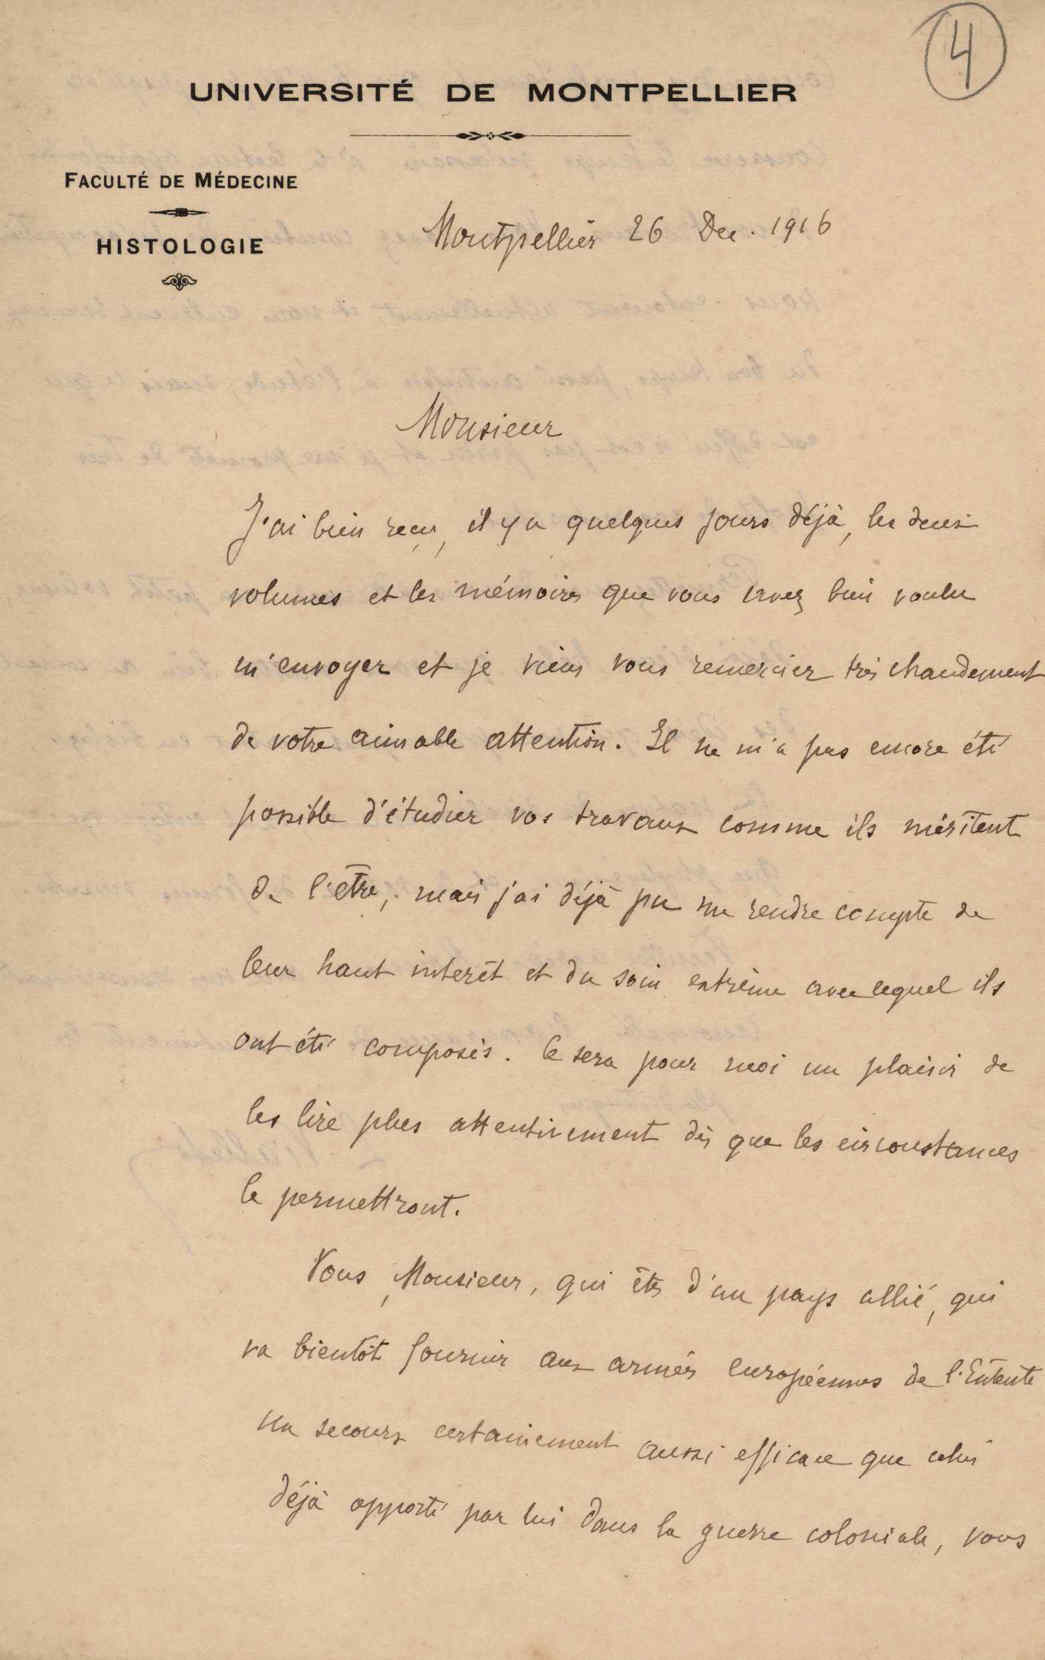 4
UNIVERSITÉ DE MONTPELLIER
FACULTÉ DE MÉDECINE
HISTOLOGIE
Montpellier 26 Dec. 1916
Monsieur
J'ai bien reçu, il y a quelques jours déjà, les deux
volumes et les mémoires que vous avez bien voulu
m'envoyer et je viens vous remercier très chaudement
de votre aimable attention. Il ne m'a pas encore été
possible d'étudier vos travaux comme ils méritent
de l'être, mais j'ai déjà pu me rendre compte de
leur haut interêt et du soin extrême avec lequel ils
ont été composés. Ce sera pour moi un plaisir de
les lire plus attentivement dès que les circonstances
le permettront.
Vous, Monsieur, qui êtes d'un pays allié, qui
va bientôt fournir aux armées européennes de l'Entente
un secours certainement aussi efficace que celui
déjà apporté par lui dans la guerre coloniale, vous